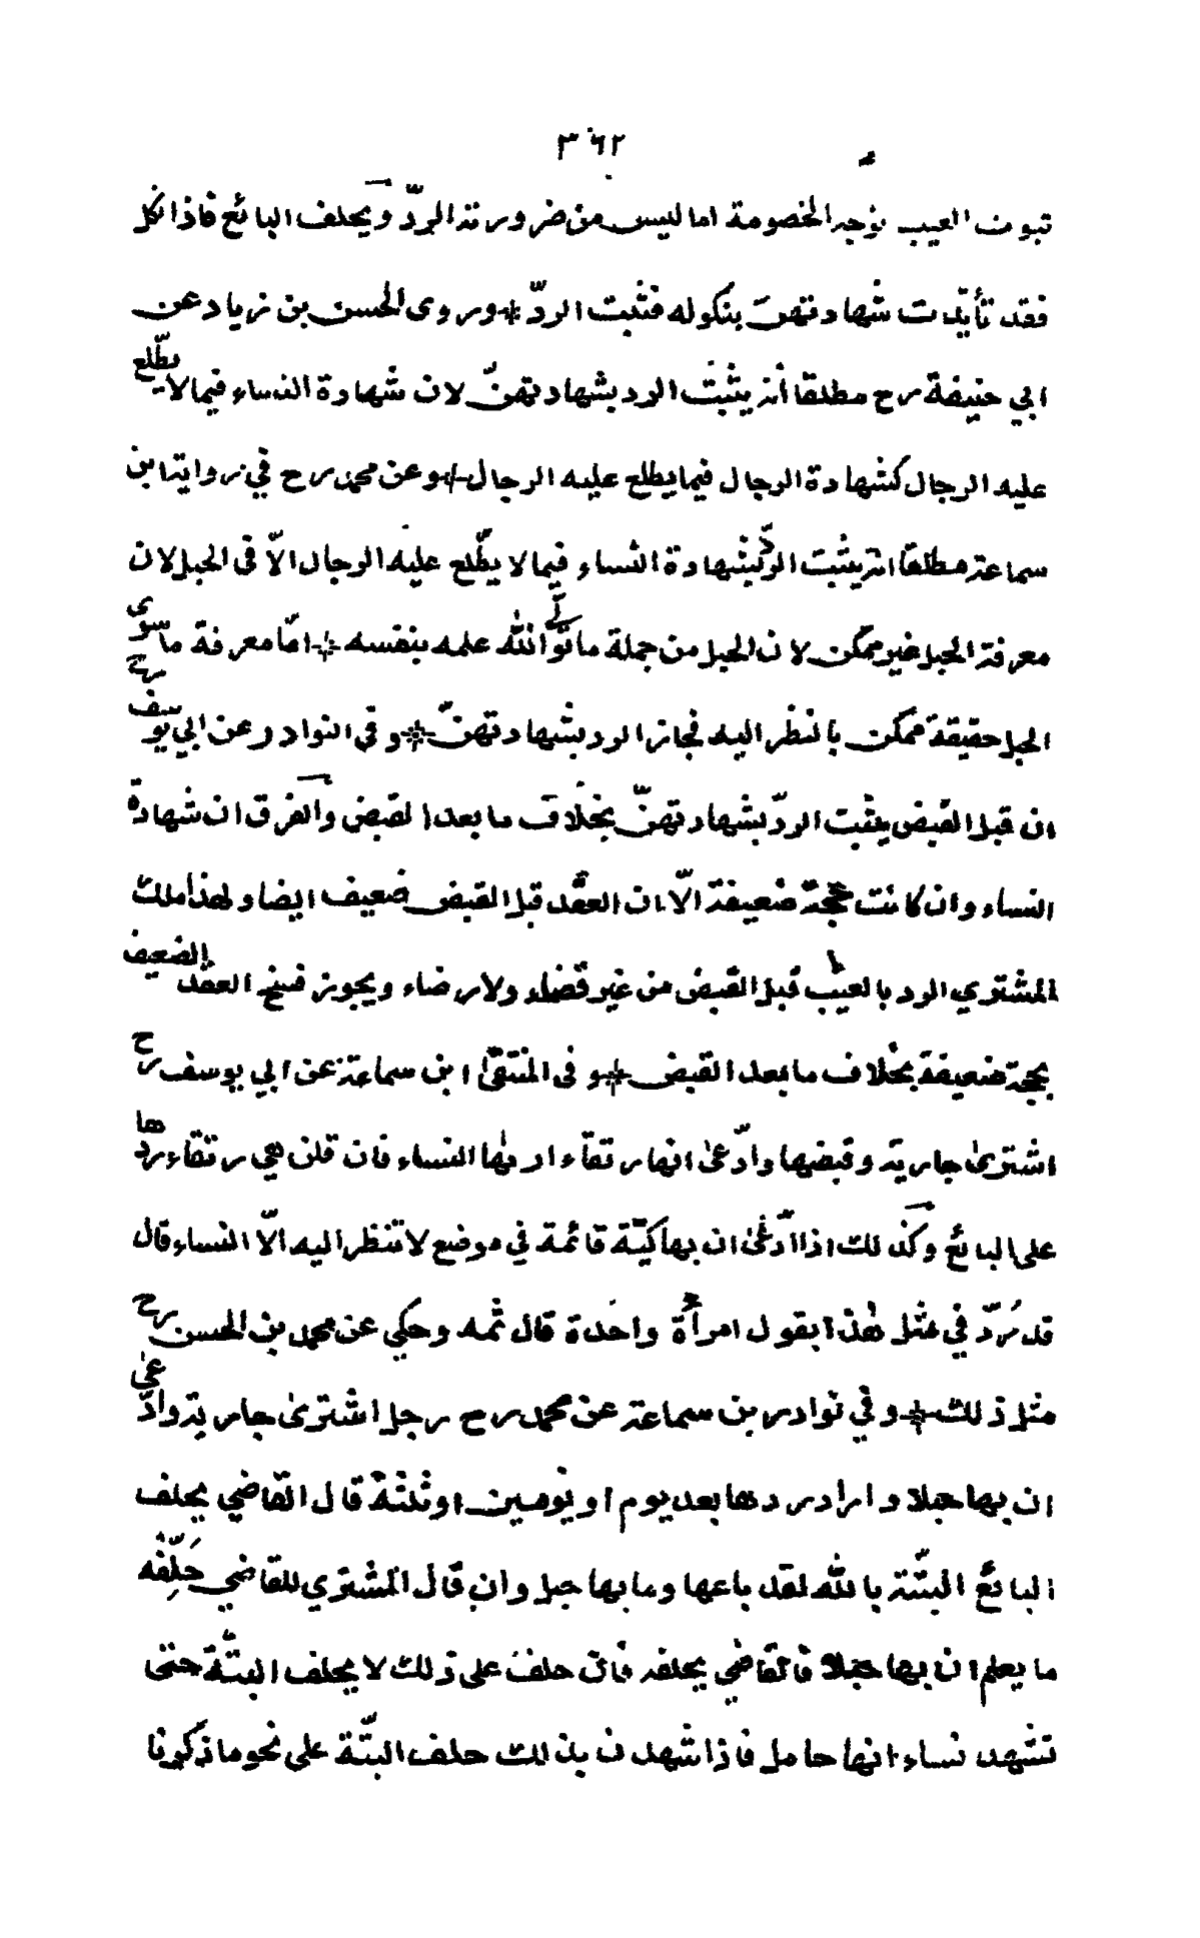 ٣٦٢
ثبوت العيب توجه الخصومة اما ليس من ضرورته الردّ ويحلف البائع فاذا نكل
فقد تأيّدت شهادتهنّ بنكوله فثبت الردّ * وروى الحسن بن زياد عن
ابي حنيفة رح مطلقا أنه يثبت الرد بشهادتهنّ لان شهادة النساء فيما لا يطّلع
عليه الرجال كشهادة الرجال فيما يطلع عليه الرجال * وعن محمد رح في رواية ابن
سماعة مطلقا انه يثبت الردّ بشهادة النساء فيما لا يطّلع عليه الرجال الاّ في الحبل لان
معرفة الحبل غير ممكن لان الحبل من جملة ما تولّى الله علمه بنفسه * امّا معرفة ما سوى
الحبل حقيقة ممكن بالنظر اليه فجاز الرد بشهادتهنّ * وفي النوادر وعن ابي يوسف رح
ان قبل القبض يثبت الردّ بشهادتهنّ بخلاف ما بعد القبض والفرق ان شهادة
النساء وان كانت حجّة ضعيفة الاّ ان العقد قبل القبض ضعيف ايضا ولهذا ملك
المشتري الرد بالعيب قبل القبض من غير قضاء ولا رضاء ويجوز فسخ العقد الضعيف
بحجة ضعيفة بخلاف ما بعد القبض * وفي المنتقى ابن سماعة عن ابي يوسف رح
اشترى جارية وقبضها وادّعى انها رتقاء اريها النساء فان قلن هي رتقاء ردها
على البائع وكذلك اذا ادّعى ان بها كيّة قائمة في موضع لا تنظر اليه الاّ النساء قال
قد نردّ في مثل هذا بقول امرأة واحدة قال ثمه وحكي عن محمد بن الحسن رح
مثل ذلك * وفي نوادر بن سماعة عن محمد رح رجل اشترى جارية وادّعى
ان بها حبلا واراد ردها بعد يوم او يومين او ثلثة قال القاضي يحلف
البائع البتّة بالله لقد باعها وما بها حبل وان قال المشتري للقاضي حَلِّفْه
ما يعلم ان بها حبلا فالقاضي يحلفه فان حلف على ذلك لا يحلف البتّة حتى
تشهد نساء انها حامل فاذا شهدن بذلك حلف البتّة على نحو ما ذكرنا